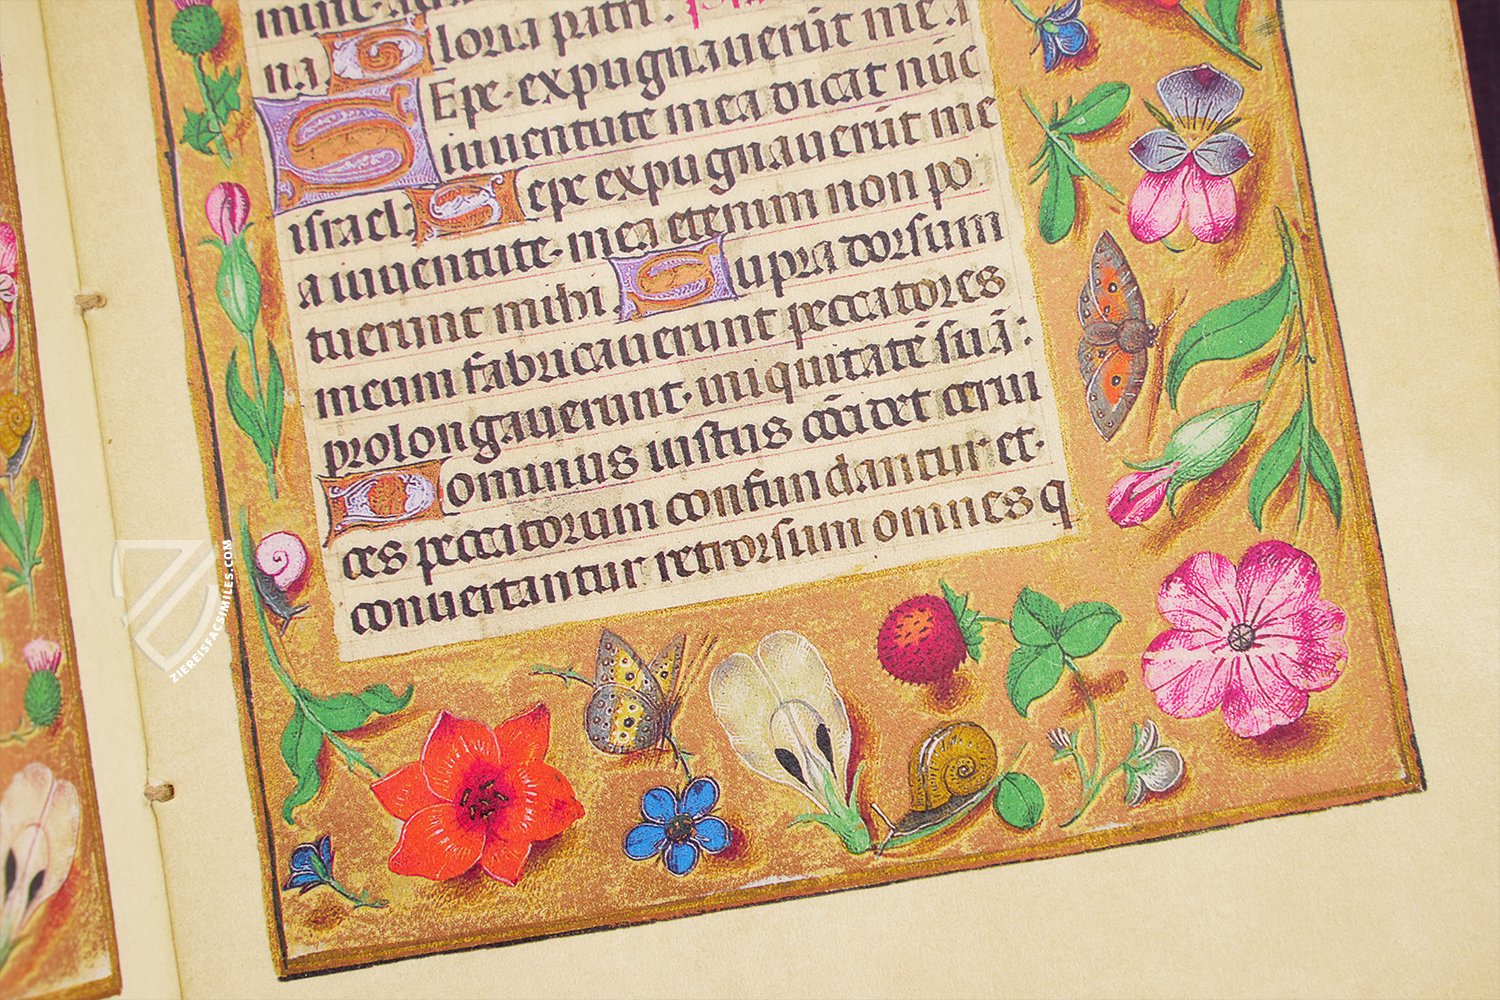 na. Gloria patri. p
SEpe expugnauerūt me a
iuuentute mea dicat nūc
israel. Sepe expugnauerūt me
a iuuentute. mea etenim non po
tuerunt mihi. Supra dorsum
meum fabricauerunt peccatores
prolongauerunt. iniquitatē suā:
Dominus iustus cōcidet cerui
ces peccatorum confundantur et.
conuertantur retrorsum omnes q
ZIEREISFACSIMILES.COM